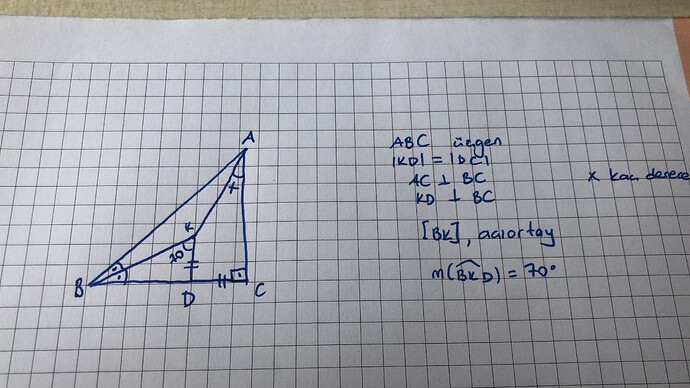 A
x
K
70
B
D
C
ABC üçgen
|KD| = |DC|
AC ⊥ BC
KD ⊥ BC
x kaç derece
[BK], açıortay
m(BKD) = 70°